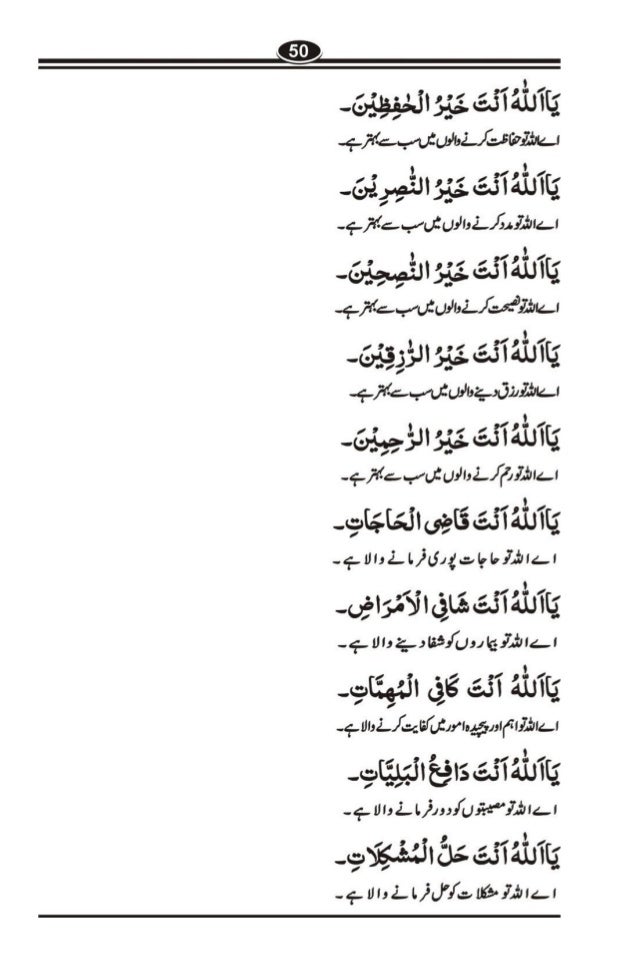 50
يَااَللّٰهُ اَنْتَ خَيْرُ الْحٰفِظِيْنَ۔
اے اللہ تو حفاظت کرنے والوں میں سب سے بہتر ہے۔
يَااَللّٰهُ اَنْتَ خَيْرُ النّٰصِرِيْنَ۔
اے اللہ تو مدد کرنے والوں میں سب سے بہتر ہے۔
يَااَللّٰهُ اَنْتَ خَيْرُ النّٰصِحِيْنَ۔
اے اللہ تو نصیحت کرنے والوں میں سب سے بہتر ہے۔
يَااَللّٰهُ اَنْتَ خَيْرُ الرّٰزِقِيْنَ۔
اے اللہ تو رزق دینے والوں میں سب سے بہتر ہے۔
يَااَللّٰهُ اَنْتَ خَيْرُ الرّٰحِمِيْنَ۔
اے اللہ تو رحم کرنے والوں میں سب سے بہتر ہے۔
يَااَللّٰهُ اَنْتَ قَاضِى الْحَاجَاتِ۔
اے اللہ تو حاجات پوری فرمانے والا ہے۔
يَااَللّٰهُ اَنْتَ شَافِى الْاَمْرَاضِ۔
اے اللہ تو بیماروں کو شفا دینے والا ہے۔
يَااَللّٰهُ اَنْتَ كَافِى الْمُهِمَّاتِ۔
اے اللہ تو اہم اور پیچیدہ امور میں کفایت کرنے والا ہے۔
يَااَللّٰهُ اَنْتَ دَافِعُ الْبَلِيَّاتِ۔
اے اللہ تو مصیبتوں کو دور فرمانے والا ہے۔
يَااَللّٰهُ اَنْتَ حَلُّ الْمُشْكِلَاتِ۔
اے اللہ تو مشکلات کو حل فرمانے والا ہے۔